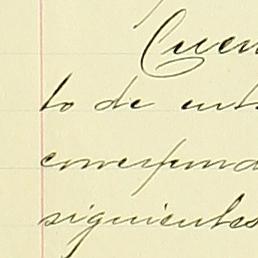 Cuen
to de ent
correspond
siguientes